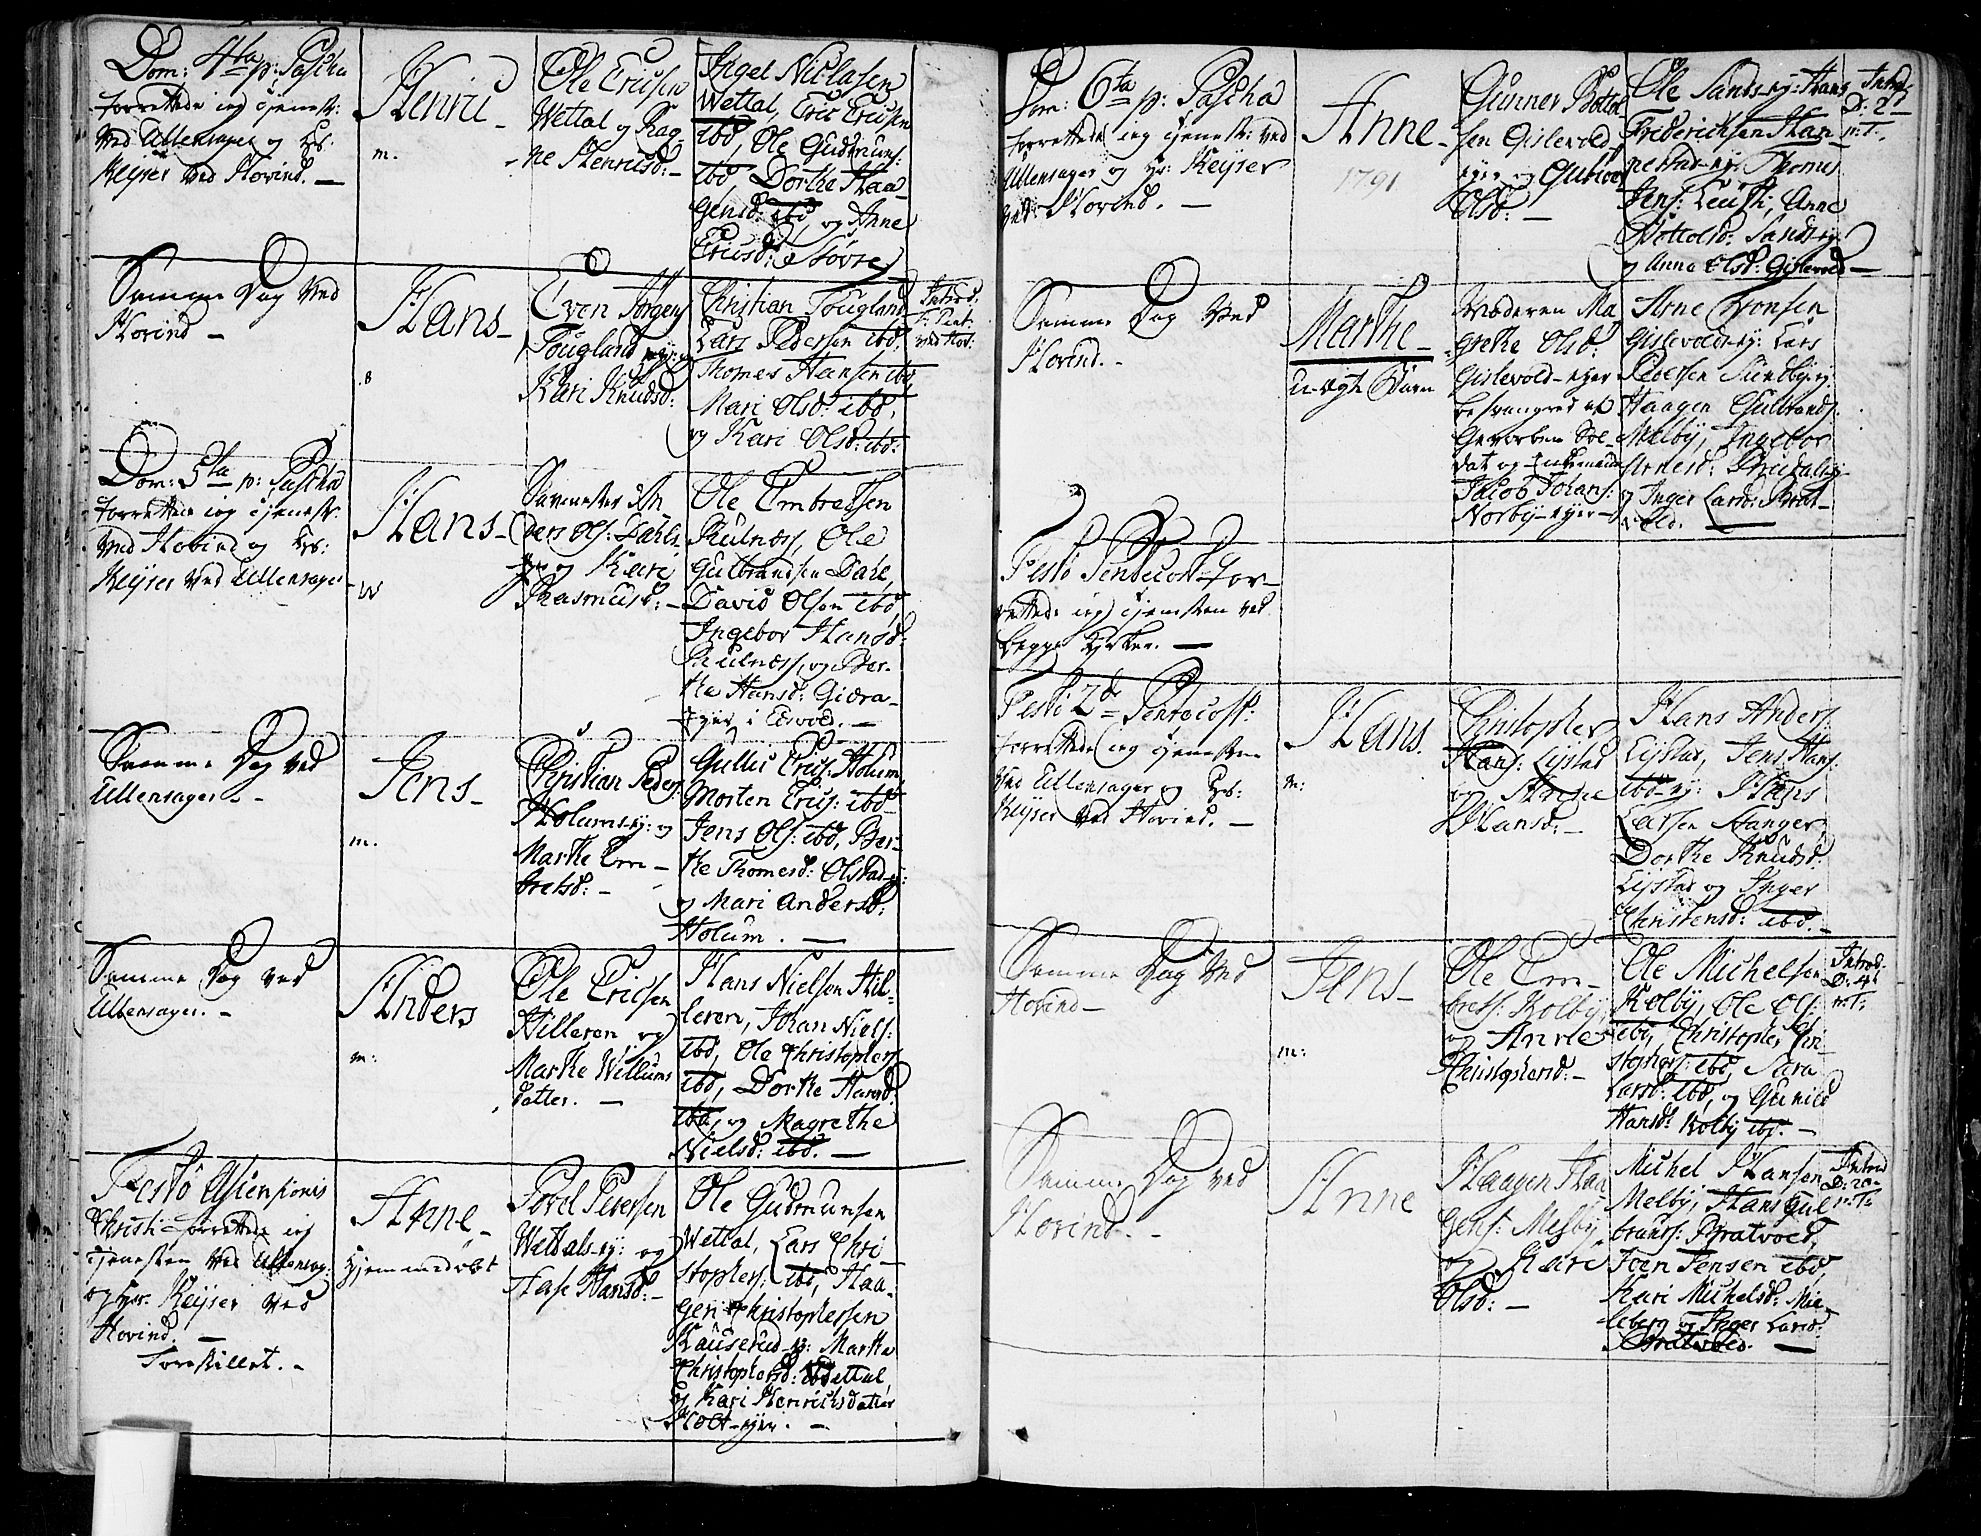 Dom: 4ta p: Pascha
forrettede ieg tjenest:
ved Ullensager og Hr:
Keyser ved Hovind. —
Henri
m.
Ole Ericsen
Wettal og Rag-
ne Henrisd: —
Inget Niclasen
Wettal, Eric Ericsen
ibd, Ole Gudmuns:
ibd, Dorthe Haa
gensd: ibd, og Anne
Ericsd: Stovre
Samme Dag ved
Hovind —
Hans —
.8
Even Jørgens
Tougland ey: og
Kari Knudsd:
Christian Tougland
Lars Pedersen ibd,
Thomes Hansen ibd,
Mari Olsd: ibd,
og Kari Olsd: ibd:
Introd:
F: Pent:
ved Hov:
Dom: 5ta p: Pascha
forrettede ieg tjenest:
ved Hovind og Hr:
Keyser ved Ullensager —
Hans —
W
An
ders Ols: Dahls
eyer og Kari
Rasmusd: —
Ole Embretsen
Kulness, Ole
Gulbrandsen Dahl,
David Olsen ibd,
Ingebor Hansd:
Kulness, og Ber-
the Hansd: Gidra-
eyer i Edsvold. —
Samme Dag ved
Ullensager — -
Jens —
m.
Christian Peders
Holum ey: og
Marthe Em —
bretsd: —
Gullic Erics: Holum,
Morten Erics: ibd
Jens Ols: ibd, Ber-
the Thomesd: Olstad ey:
og Mari Andersd:
Holum. —
Samme Dag ved
Ullensager. —
Anders
m:
Ole Ericsen
Hilleren og
Marthe Willums
datter. —
Hans Nielsen Hil-
leren, Johan Niels:
ibd, Ole Christophers
ibd, Dorthe Hansd:
ibd, og Magrethe
Nielsd: ibd. —
Festo Asensionis
Christi forrettede ieg
tjenesten ved Ullensag:
og Hr. Keyser ved
Hovind. —
Forestillet. —
Anne —
Hjemmedøbt
Povel Pedersen
Wettals ey: og
Hansd: —
Ole Gudmunsen
Wettal, Lars Chri
stophers: ibd, Haa-
gen Christophersen
Kauserud ey: Marthe
Christophersd: Wettal,
og Kari Henrichsdatter
Holt-eyer. —
Dom: 6ta p: Pascha
forrettede ieg tjenest: ved
Ullensager og Hr: Keyser
ved Hovind. —
Anne —
1791
Gunner Bottol
sen Gislevold
eyer og Gubior
Olsd: —
Ole Sands ey: Hans
Friderichsen Han
nestad ey: Thomes
Jens: Anne
Bottolsd: Sands ey:
og Anna Olsd: Gislevold —
Introd:
D: 2d
p: T.
Samme Dag ved
Hovind. —
Marthe —
U-ægte Barn
Moderen Ma
grethe Olsd:
Gislevold — eyer
besvangred af
Gevorben Sol-
dat og Enkemand
Jacob Johans:
Norby — eyer —
Arne Evensen
Gislevolds ey: Lars
Pedersen Sundby ey:
Haagen Gulbrands:
Melby, Ingebor
Arnesd:
og Inger Larsd: Brat-
vold. —
Festo Pentecost for-
rettede ieg tjenesten ved
begge Kirker. —
Festo 2d Pentecost:
forrettede ieg tjenesten
ved Ullensager og Hr:
Keyser ved Hovind. —
Hans.
m:
Christopher
Hans: Lystad
og Marthe
Hansd: —
Hans Anders:
Lystad, Jens Hans:
ibd ey: Hans
Larsen Hanger,
Dorthe Knudsd:
Lystad og Inger
Christensd: ibd. —
Samme Dag ved
Hovind —
Jens —
m:
Ole Em —
brets: Kolby,
og Anne
Christophersd: —
Ole Michelsen
Kolby, Ole Ols:
ibd, Christopher Chri-
stophers: ibd, Sara
Larsd: ibd, og Gunild
Hansd: Kolby ibd. —
Introd:
D: 4t
p: T:
Samme Dag ved
Hovind. —
Anne
Haagen Haa
gens: Melby
og Kari
Olsd: —
Michel Hansen
Melby, Hans Gul
brands: Bratvold,
Joen Jensen ibd,
Kari Michelsd: Mie-
leberg og Inger Larsd:
Bratvold. —
Introd
D: 20
p: T: